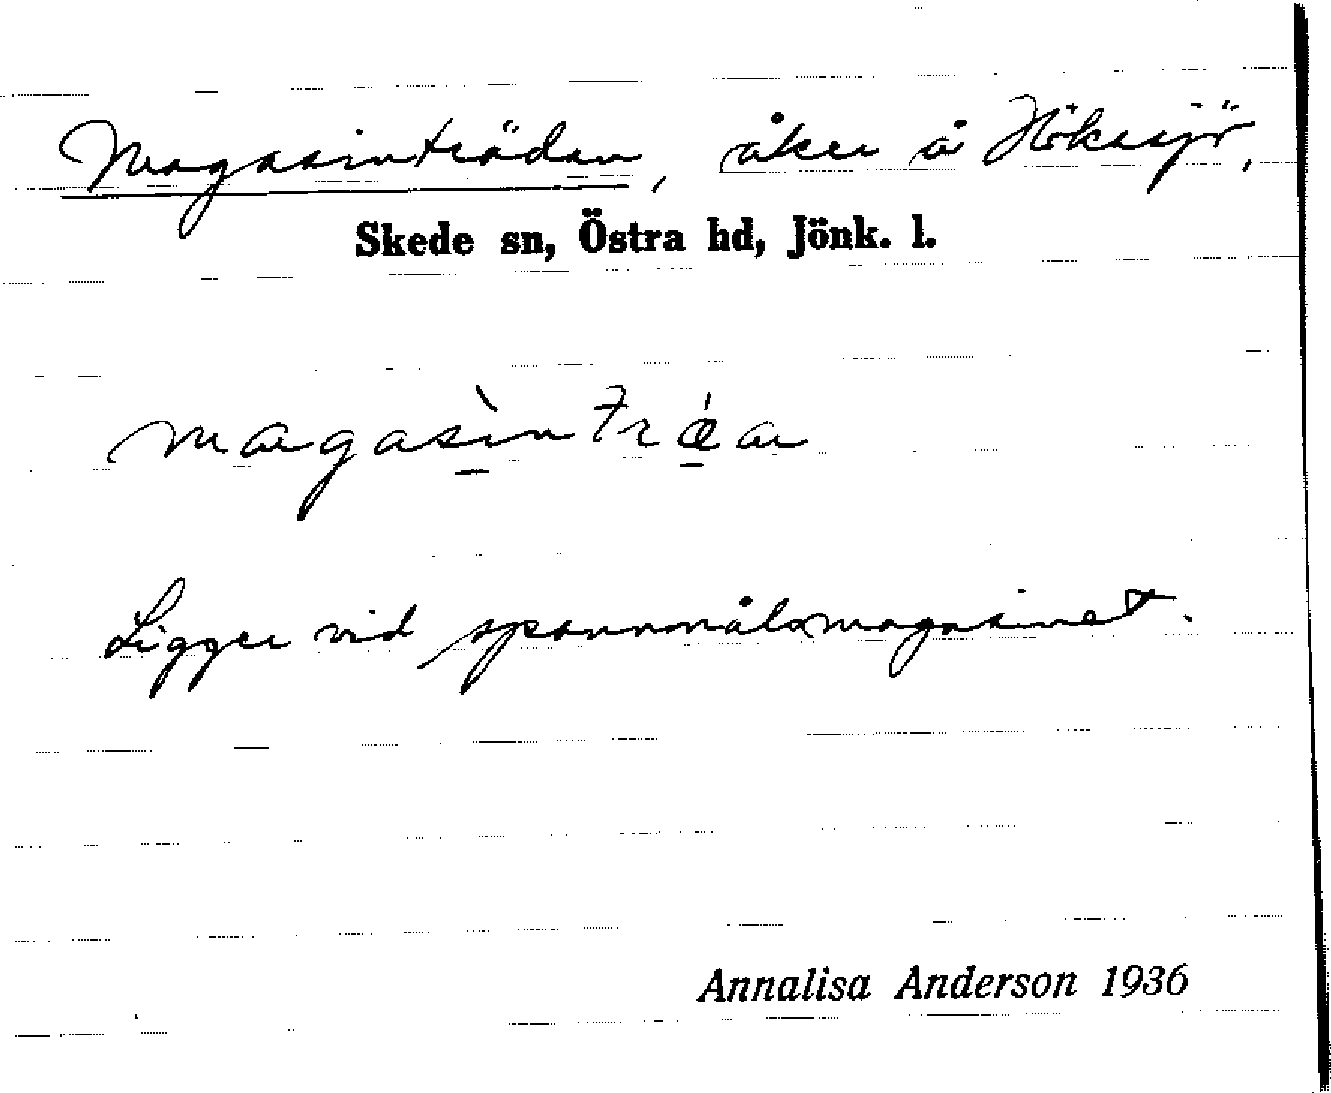 Magasinträdan, åker å Hökasjö,
Skede sn, Östra hd, Jönk. l.
Ligger vid spannmålsmagasinet.
Annalisa Anderson 1936